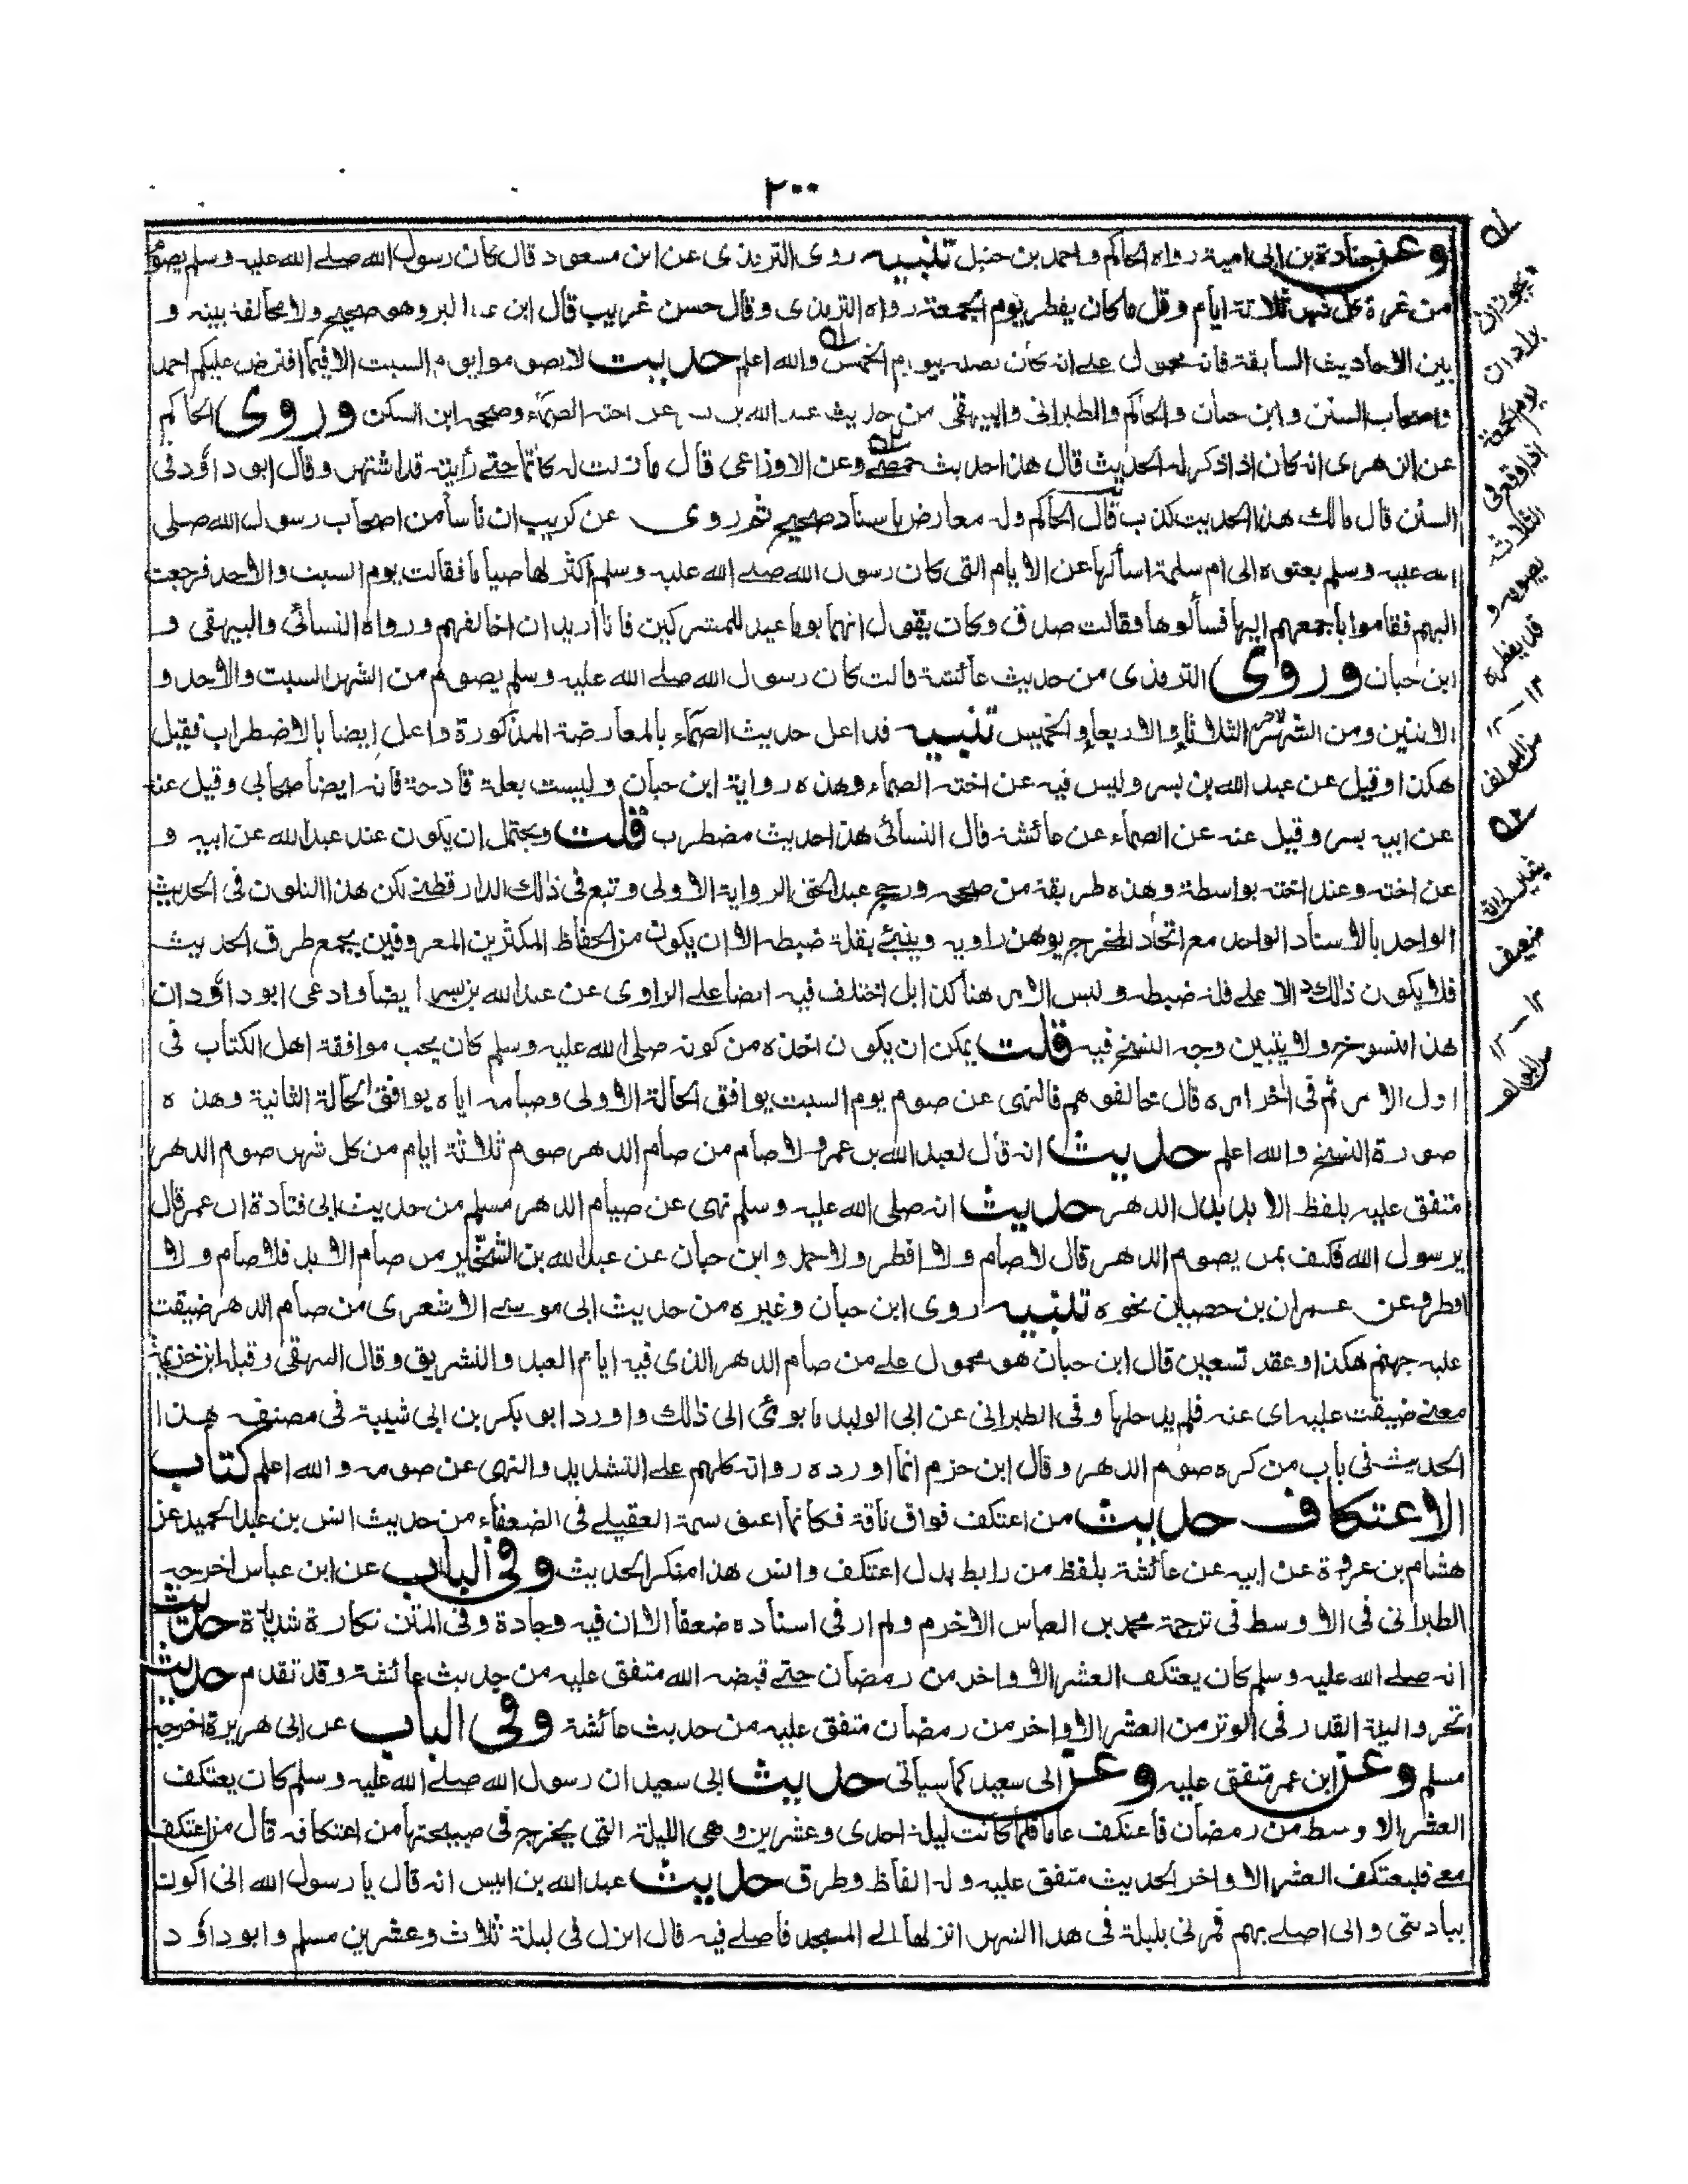 ٢٠٠
وعن جنادة بن ابى امية رواه الحاكم واحمد بن حنبل تنبيه روى الترمذى عن ابن مسعود قال كان رسول الله صلے الله عليه وسلم يصوم
من غرة كل شهر ثلاثة ايام وقل ما كان يفطر يوم الجمعة رواه الترمذى وقال حسن غريب قال ابن عبد البر وهو صحيح ولا مخالفة بينه و
بين الاحاديث السابقة فانه محمول على انه كان يصله بيوم الخميس والله اعلم حديث لا تصوموا يوم السبت الا فيما افترض عليكم احمد
واصحاب السنن وابن حبان والحاكم والطبرانى والبيهقى من حديث عبد الله بن بسر عن اخته الصماء وصححه ابن السكن وروى الحاكم
عن الزهرى انه كان اذا ذكر له الحديث قال هذا حديث حمصے وعن الاوزاعى قال ما زلت له كاتما حتے رأيته قد اشتهر وقال ابو داؤد فى
السنن قال مالك هذا الحديث كذب قال الحاكم وله معارض باسناد صحيح ثم روى عن كريب ان ناسا من اصحاب رسول الله صلى
الله عليه وسلم بعثوه الى ام سلمة اسألها عن الايام التى كان رسول الله صلے الله عليه وسلم اكثر لها صياما فقالت يوم السبت والاحد فرجعت
اليهم فقاموا باجمعهم اليها فسألوها فقالت صدق وكان يقول انهما يوما عيد للمشركين فانا اريد ان اخالفهم ورواه النسائى والبيهقى و
ابن حبان وروى الترمذى من حديث عائشة قالت كان رسول الله صلے الله عليه وسلم يصوم من الشهر السبت والاحد و
الاثنين ومن الشهر الاخر الثلاثاء والاربعاء والخميس تنبيه قد اعل حديث الصماء بالمعارضة المذكورة واعل ايضا بالاضطراب فقيل
هكذا وقيل عن عبد الله بن بسر وليس فيه عن اخته الصماء وهذه رواية ابن حبان وليست بعلة قادحة فانه ايضا صحابى وقيل عنه
عن ابيه بسر وقيل عنه عن الصماء عن عائشة قال النسائى هذا حديث مضطرب قلت ويحتمل ان يكون عند عبد الله عن ابيه و
عن اخته وعند اخته بواسطة وهذه طريقة من صححه ورجح عبد الحق الرواية الاولى وتبع فى ذالك الدارقطنے لكن هذا التلون فى الحديث
الواحد بالاسناد الواحد مع اتحاد المخرج يوهن راويه وينبئ بقلة ضبطه الا ان يكون من الحفاظ المكثرين المعروفين بجمع طرق الحديث
فلا يكون ذالك دالا على قلة ضبطه وليس الامر هنا كذا بل اختلف فيه ايضا على الراوى عن عبد الله بن بسر ايضا وادعى ابو داؤد ان
هذا منسوخ ولا يتبين وجه النسخ فيه قلت يمكن ان يكون اخذه من كونه صلى الله عليه وسلم كان يحب موافقة اهل الكتاب فى
اول الامر ثم فى اخر امره قال خالفوهم فالنهى عن صوم يوم السبت يوافق الحالة الاولى وصيامه اياه يوافق الحالة الثانية وهذه
صورة النسخ والله اعلم حديث انه قال لعبد الله بن عمرو لا صام من صام الدهر صوم ثلاثة ايام من كل شهر صوم الدهر
متفق عليه بلفظ الابد بدل الدهر حديث انه صلى الله عليه وسلم نهى عن صيام الدهر مسلم من حديث ابى قتادة ان عمر قال
يرسول الله فكيف بمن يصوم الدهر قال لا صام ولا افطر ولاحمد وابن حبان عن عبد الله بن الشخير من صام الابد فلا صام ولا
افطر وعن عمران بن حصين نحوه تنبيه روى ابن حبان وغيره من حديث ابى موسے الاشعرى من صام الدهر ضيقت
عليه جهنم هكذا وعقد تسعين قال ابن حبان هو محمول علے من صام الدهر الذى فيه ايام العيد والتشريق وقال البيهقى وقبله ابن خزيمة
معنے ضيقت عليه اى عنه فلم يدخلها وفى الطبرانى عن ابى الوليد ما يومئ الى ذالك واورد ابو بكر بن ابى شيبة فى مصنفه هذا
الحديث فى باب من كره صوم الدهر وقال ابن حزم انما اورده رواته كلهم علے التشديد والنهى عن صومه والله اعلم كتاب
الاعتكاف حديث من اعتكف فواق ناقة فكانما اعتق نسمة العقيلے فى الضعفاء من حديث انس بن عبد الحميد عن
هشام بن عروة عن ابيه عن عائشة بلفظ من رابط بدل اعتكف وانس هذا منكر الحديث وفى الباب عن ابن عباس اخرجه
الطبرانى فى الاوسط فى ترجمة محمد بن العباس الاخرم ولم ار فى اسناده ضعفا الا ان فيه وجادة وفى المتن نكارة شديدة حديث
انه صلے الله عليه وسلم كان يعتكف العشر الاواخر من رمضان حتے قبضه الله متفق عليه من حديث عائشة وقد تقدم حديث
تحروا ليلة القدر فى الوتر من العشر الاواخر من رمضان متفق عليه من حديث عائشة وفى الباب عن ابى هريرة اخرجه
مسلم وعن ابن عمر متفق عليه وعن ابى سعيد كما سياتى حديث ابى سعيد ان رسول الله صلے الله عليه وسلم كان يعتكف
العشر الاوسط من رمضان فاعتكف عاما فلما كانت ليلة احدى وعشرين وهى الليلة التى يخرج فى صبيحتها من اعتكافه قال من اعتكف
معے فليعتكف العشر الاواخر الحديث متفق عليه وله الفاظ وطرق حديث عبد الله بن انيس انه قال يا رسول الله انى اكون
ببادیتى وانى اصلے بهم فمرنى بليلة فى هذا الشهر انزلها الے المسجد فاصلے فيه قال انزل فى ليلة ثلاث وعشرين مسلم وابو داؤد
له
يجوز ان
يراد ان
يوم الجمعة
اذا وقع فى
الثلاثة
يصومه و
قد يفطره
١٢ – ١٢
من المؤلف
٢ه
يشير الى انه
ضعيف
١٢ – ١٢